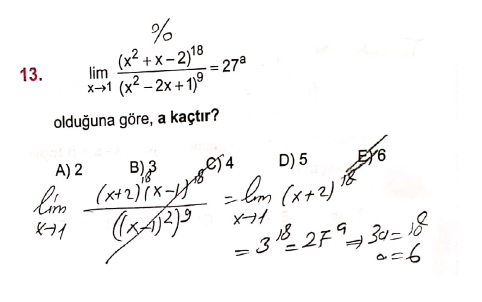 %
13. lim x→1 (x² + x – 2)¹⁸ / (x² – 2x + 1)⁹ = 27ᵃ
olduğuna göre, a kaçtır?
A) 2 B) 3 C) 4 D) 5 E) 6
lim x→1 (x+2)¹⁸ (x–1)¹⁸ / ((x–1)²)⁹ = lim x→1 (x+2)¹⁸
= 3¹⁸ = 27ᵃ ⇒ 3a = 18
a = 6